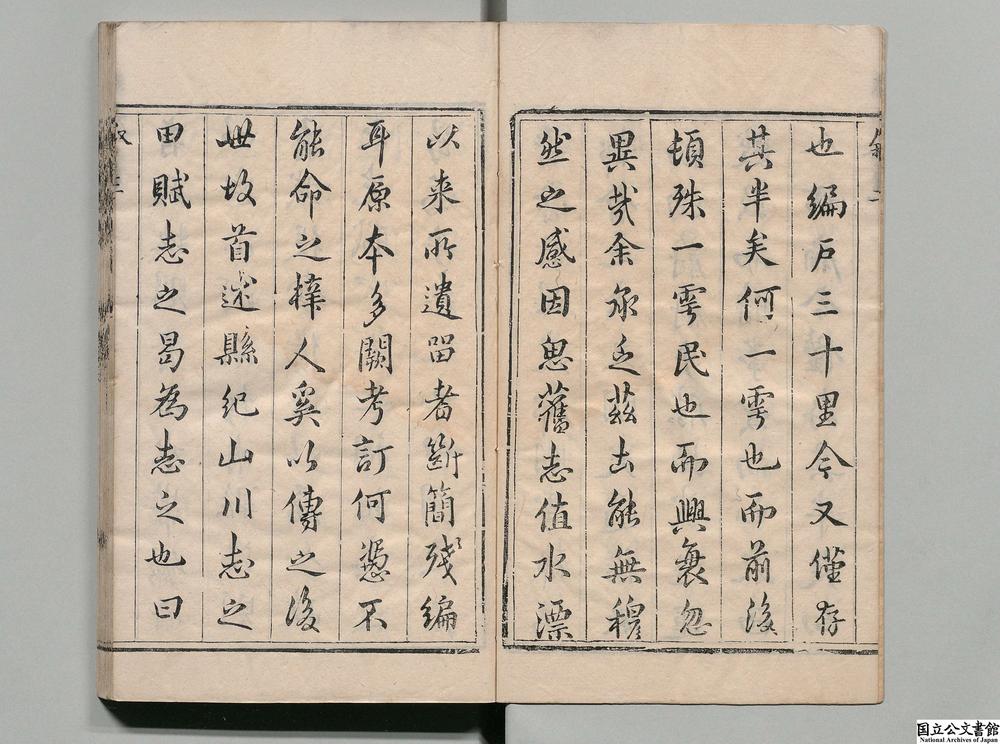 也編戶三十里今又僅存
其半矣何一雩也而前後
頓殊一雩民也而興衰忽
異哉余承乏茲土能無穆
然之感因思舊志值水漂
以来所遺畄者斷簡残編
耳原本多闕考訂何憑不
能命之梓人奚以傳之後
世故首述縣紀山川志之
田賦志之曷為志之也曰
国立公文書館
National Archives of Japan